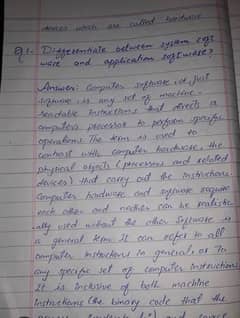 devices which are called hardware
Q1. Differentiate between system soft
ware and application software?
Answer: Computer software, or just
software, is any set of machine-
readable instructions that directs a
computer's processor to perform specific
operations. The term is used to
contrast with computer hardware, the
physical objects (processors and related
devices) that carry out the instructions.
Computer hardware and software require
each other and neither can be realistic-
ally used without the other. Software is
a general term. It can refer to all
computer instructions in general, or to
any specific set of computer instructions.
It is inclusive of both machine
instructions (the binary code that the